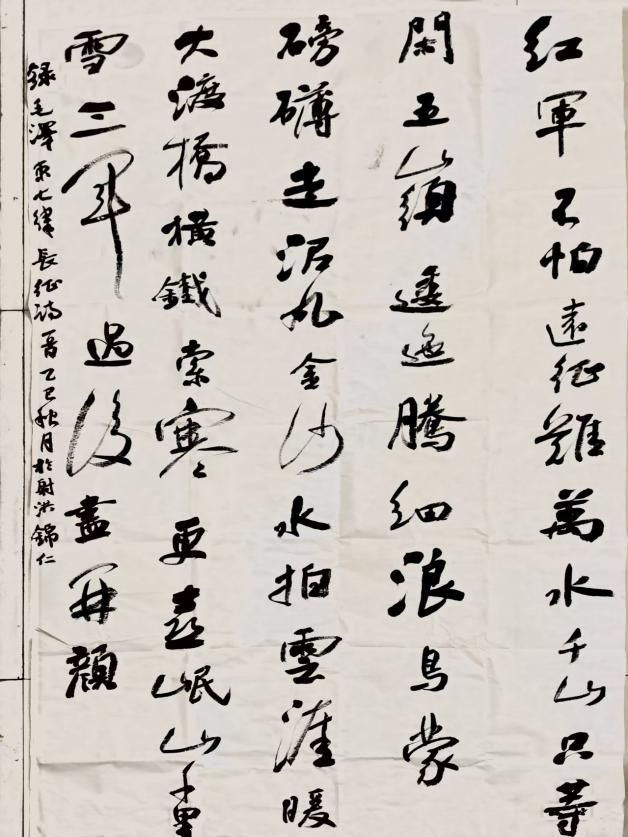 紅軍不怕遠征難萬水千山只等
閑五嶺逶迤騰細浪烏蒙
磅礴走泥丸金沙水拍雲涯暖
大渡橋橫鐵索寒更喜岷山千里
雪三軍過後盡開顏
錄毛澤東七律長征詩一首乙巳秋月於射洪錦仁